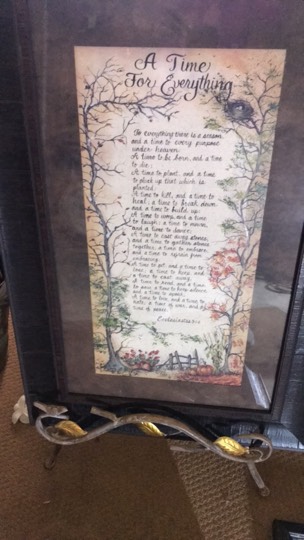 A Time
For Everything
To everything there is a season,
and a time to every purpose
under heaven:
A time to be born, and a time
to die;
A time to plant, and a time
to pluck up that which is
planted;
A time to kill, and a time to
heal; a time to break down,
and a time to build up;
A time to weep, and a time
to laugh; a time to mourn,
and a time to dance;
A time to cast away stones,
and a time to gather stones
together; a time to embrace,
and a time to refrain from
embracing;
A time to get, and a time to
lose; a time to keep, and
a time to cast away;
A time to rend, and a time
to sew; a time to keep silence,
and a time to speak;
A time to love, and a time to
hate; a time of war, and a
time of peace.
Ecclesiastes